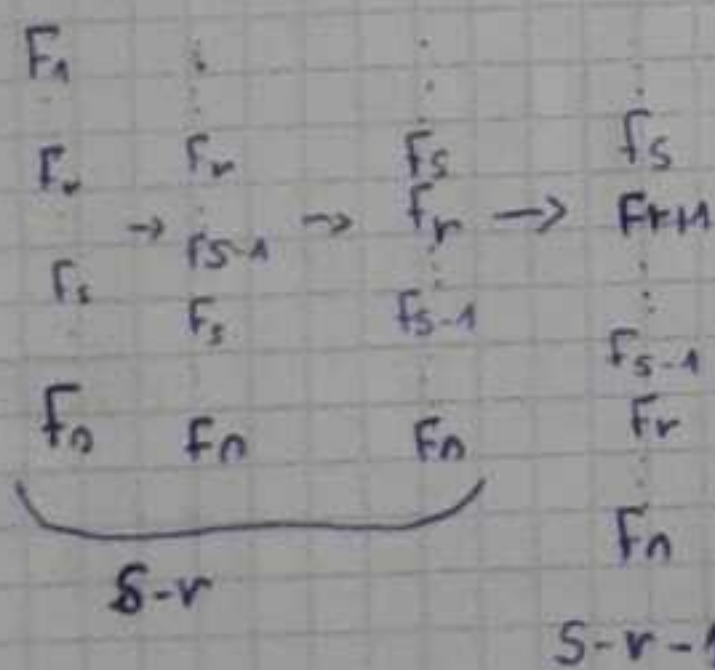 F1 . . .
. . . .
Fr Fr fs fs
. → . → fr → Fr+1
Fs fs-1 . .
. Fs fs-1 Fs-1
Fn Fn Fn Fr
. . . Fn
s-r s-r-1